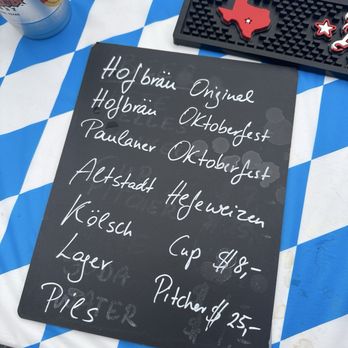 Hofbräu Original
Hofbräu Oktoberfest
Paulaner Oktoberfest
Altstadt Hefeweizen
Kölsch
Cup $8,-
Lager
Pitcher $25,-
Pils